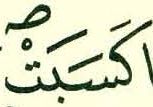 ا كَسَبَتْ ۖ